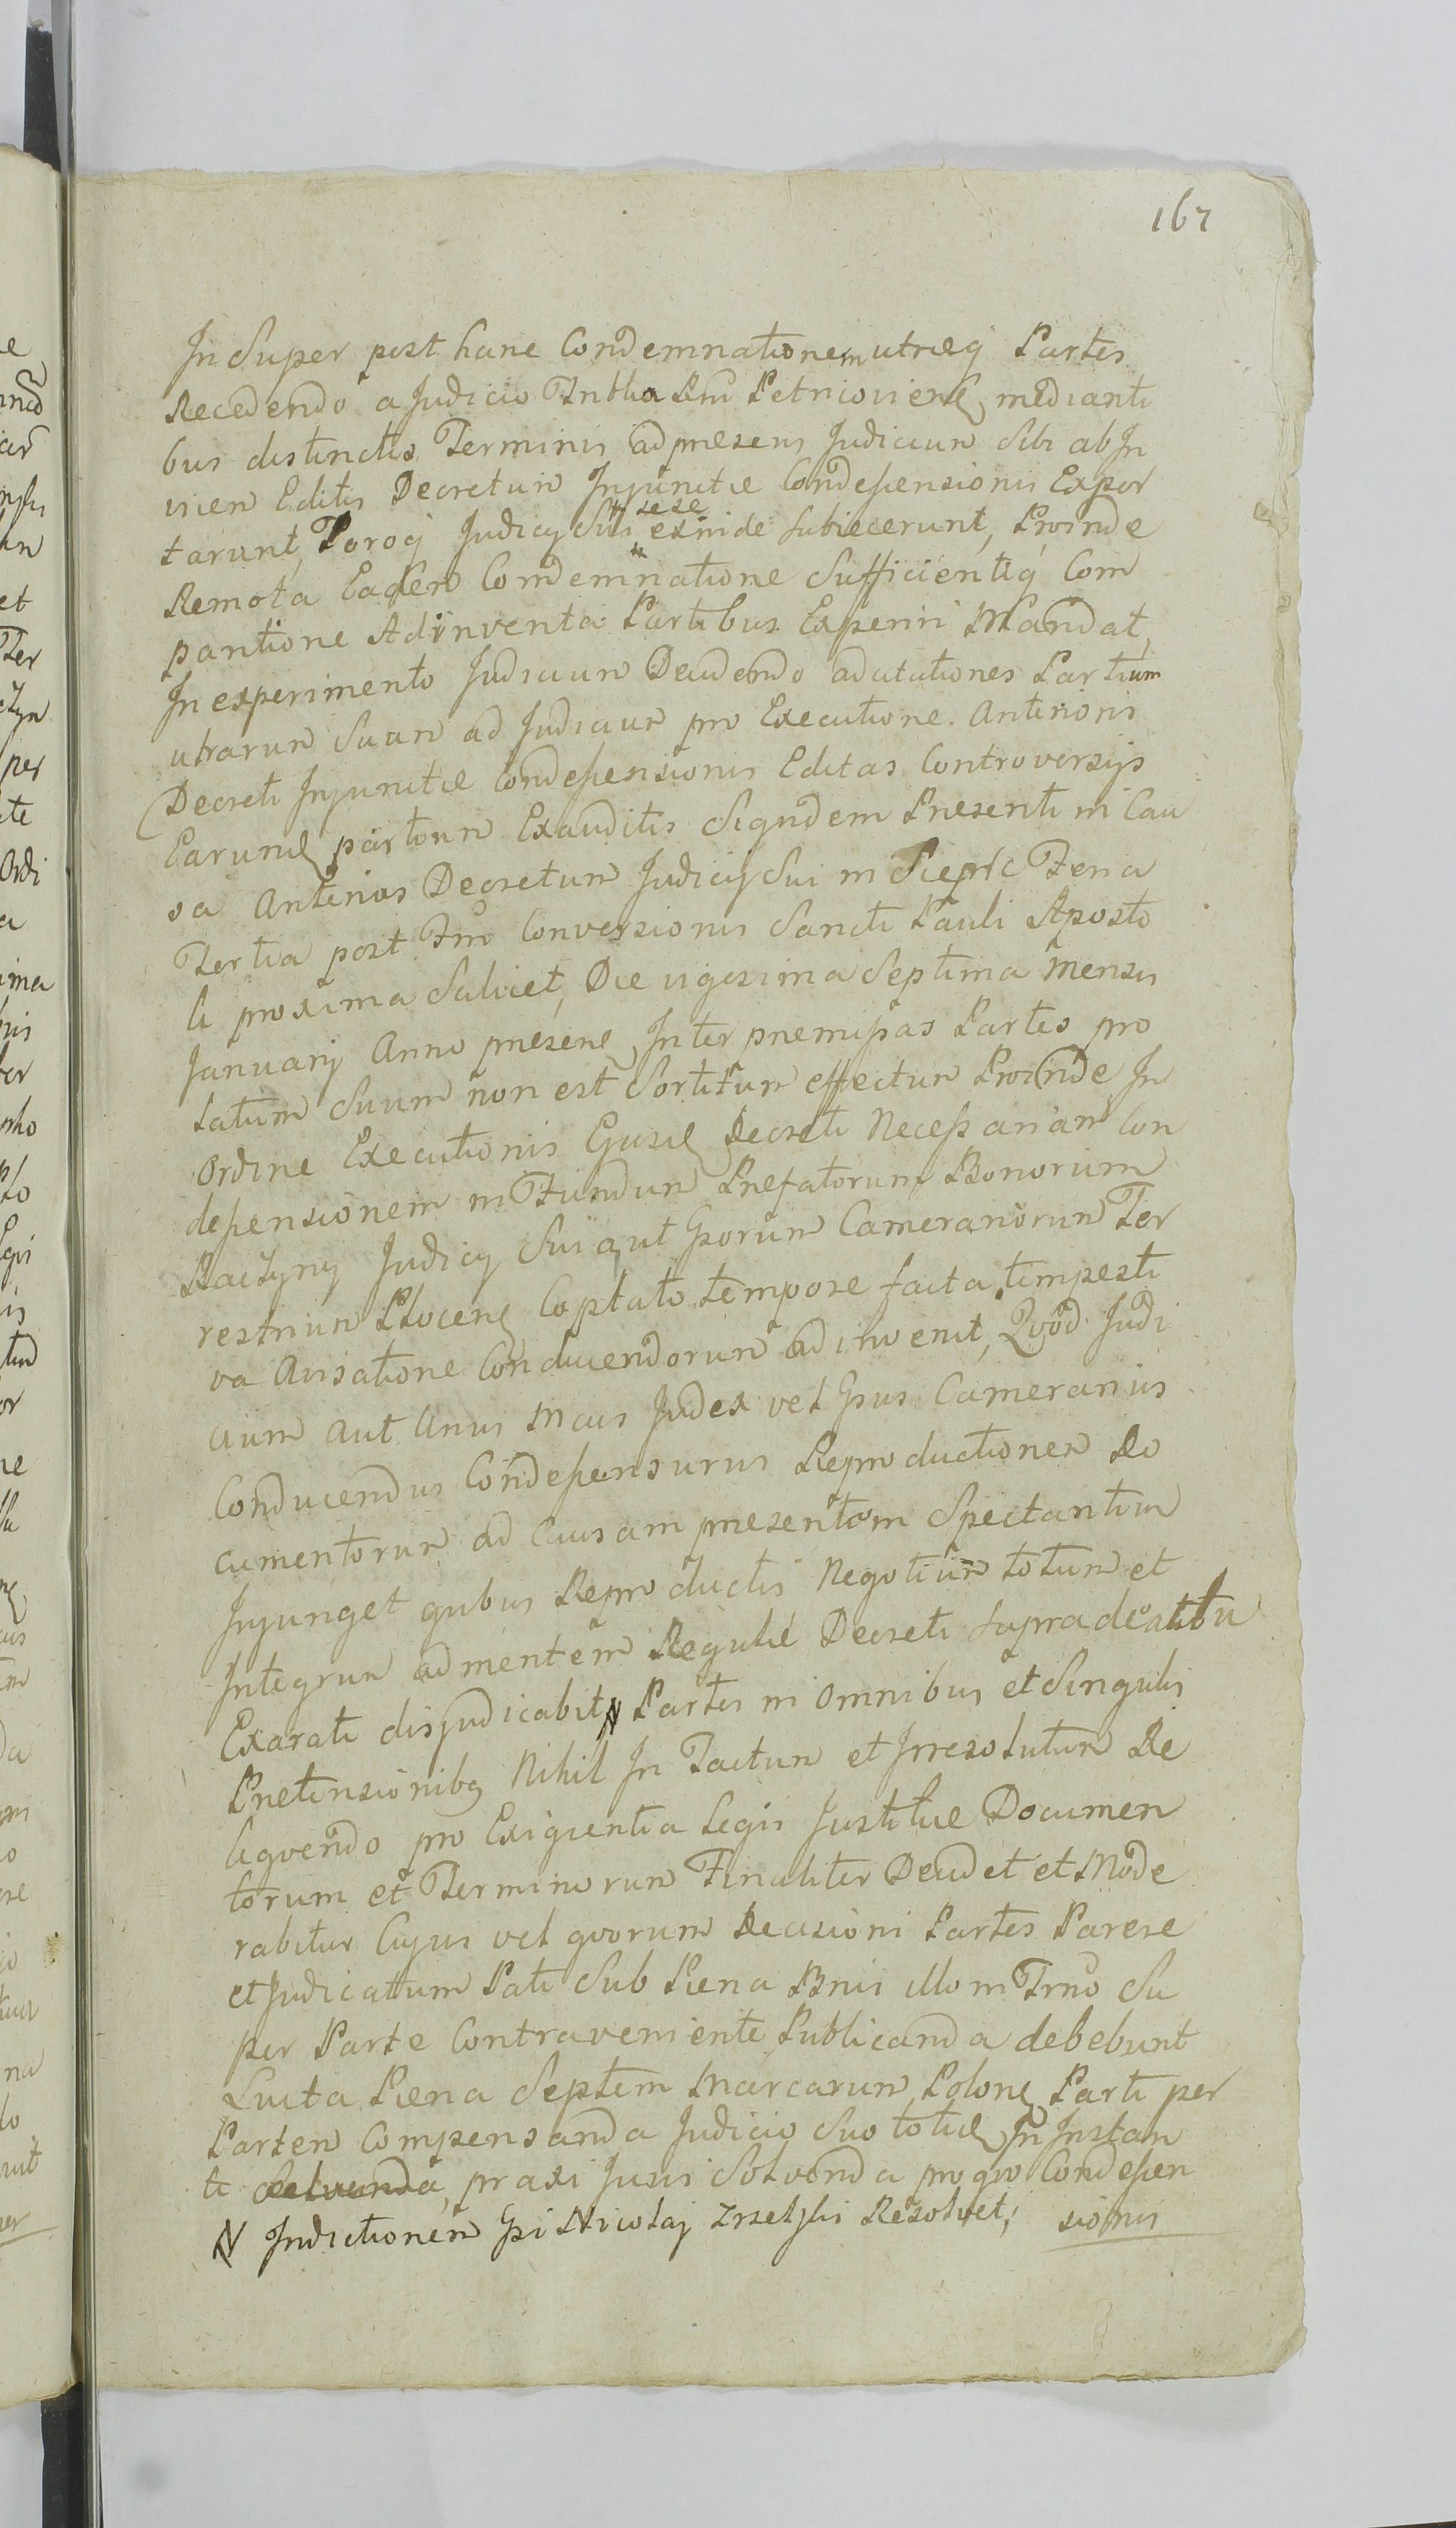 167
In Super post hanc Condemnationem utræq Partes
Recedendo a Judicio Tnbli Rni Petricovien, medianti
bus distinctis Terminis ad præsens Judicium Sibi ab In
vicen Editis Decretum Injunctæ Condescensionis Expor
tarunt, Foroq Judicy Sui sese exinde Subiecerunt, Proinde
Remota Eaden Condemnatione Sufficientiq Com
paritione Adinventa Partibus Experiri Mandat,
In experimento Judicium Decidendo ad citationes Partium
utrarum Suam ad Judicium pro Executione Anterioris
Decreti Injunctæ Condescensionis Editas Controversijs
Earund partium Exauditis Siqudem Presenti in Cau
sa Anterios Decretum Judicij Sui in Sierpc Feria
Tertia post Fm Conversionis Sancti Pauli Aposto
li proxima Scilicet, Die vigesima Septima Mensis
Januarij Anno præsen, Inter præmissas Partes pro
latum Suum non est Sortitum effectum Proinde In
Ordine Executionis Ejusd Decreti Necessariam Con
descensionem in Fundum Prefatorum Bonorum
Raczyny Judicy Sui aut Gsorum Camerariorum Ter
restrium Plocen Captato tempore facta tempesti
va Avisatione Conducendorum adinvenit, Qvod Judi
cium aut Unus Mcus Judex vel Gsus Camerarius
Conducendus Condescensurus Reproductionem Do
cumentorum ad Causam præsentem Spectantium
Injunget qubus Reproductis Negotium totum et
Integrum ad mentem Regulæ Decreti Supra de actu
Exarati disjudicabit N Partes in Omnibus et Singulis
Pretensionibq Nihil In Tactum et Irresolutum Re
liqvendo pro Exigentia Legis Justitiæ Documen
torum et Terminorum Finaliter Decidet et Mode
rabitur Cujus vel qvorum Decisioni Partes Parere
et Judicatum Pati Sub Pæna Bnis illo in Trno Su
per Parte Contraveniente Publicanda debebunt
Lucta Pæna Septem Marcarum Polon, Parti per
Parten Compensanda Judicio Suo totid In Instan
ti praxi Juris Solvenda pro qvo Condescen
N Indictionem Gsi Nicolaj Resolvet; sionis